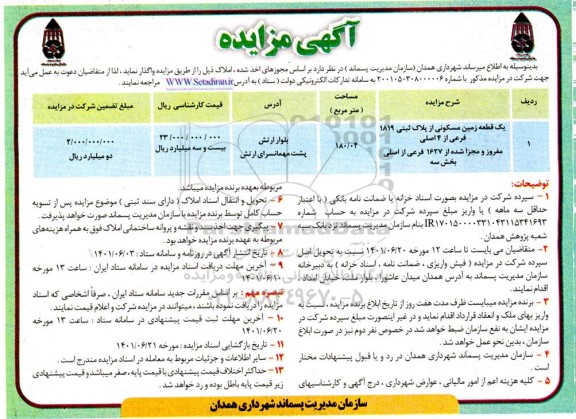 آگهی مزایده
بدینوسیله به اطلاع میرساند شهرداری همدان (سازمان مدیریت پسماند) در نظر دارد بر اساس مجوزهای اخذ شده ، املاک ذیل را از طریق مزایده واگذار نماید ، لذا از متقاضیان دعوت به عمل می‌آید
جهت شرکت در مزایده مذکور با شماره ۲۰۰۱۰۵۰۳۰۸۰۰۰۰۰۶ به سامانه تدارکات الکترونیکی دولت ( ستاد ) به آدرس WWW.Setadiran.ir مراجعه نمایند .
ردیف شرح مزایده مساحت ( متر مربع ) آدرس قیمت کارشناسی ریال مبلغ تضمین شرکت در مزایده
۱ یک قطعه زمین مسکونی از پلاک ثبتی ۱۸۱۹ فرعی از ۴ اصلی مفروز و مجزا شده از ۱۶۳۷ فرعی از اصلی بخش سه ۱۸۰/۰۴ بلوار ارتش پشت مهمانسرای ارتش ۲۳/۰۰۰/۰۰۰/۰۰۰ بیست و سه میلیارد ریال ۲/۰۰۰/۰۰۰/۰۰۰ دو میلیارد ریال
توضیحات:
۱ - سپرده شرکت در مزایده بصورت اسناد خزانه یا ضمانت نامه بانکی ( با اعتبار
حداقل سه ماهه ) یا واریز مبلغ سپرده شرکت در مزایده به حساب شماره
بنام سازمان مدیریت پسماند نزد بانک سپه
شعبه پژوهش همدان .
۲- متقاضیان می بایست تا ساعت ۱۲ مورخه ۱۴۰۱/۰۶/۲۰ نسبت به تحویل اصل
سپرده شرکت در مزایده ( فیش واریزی ، ضمانت نامه ، اسناد خزانه ) به دبیرخانه
سازمان مدیریت پسماند به آدرس همدان میدان عاشورا، بلوار
اقدام نمایند.
۳ - برنده مزایده میبایست ظرف مدت هفت روز از تاریخ ابلاغ برنده مزایده، نسبت به
واریز بهای ملک و انعقاد قرارداد اقدام نماید و در غیر اینصورت مبلغ سپرده شرکت در
مزایده ایشان به نفع سازمان ضبط خواهد شد در خصوص نفر دوم نیز در صورت ابلاغ
سازمان ، بدین نحو عمل خواهد شد.
۴ - سازمان مدیریت پسماند شهرداری همدان در رد و یا قبول پیشنهادات مختار
است .
۵ - کلیه هزینه اعم از امور مالیاتی ، عوارض شهرداری ، درج آگهی و کارشناسیهای
مربوطه بعهده برنده مزایده میباشد.
۶ - تحویل و انتقال اسناد املاک ( دارای سند ثبتی ) موضوع مزایده پس از تسویه
حساب کامل توسط برنده مزایده با سازمان مدیریت پسماند صورت خواهد پذیرفت .
۷ - پیگیری جهت اخذ نقشه و پروانه ساختمانی املاک فوق به همراه هزینه‌های
مربوطه به عهده برنده مزایده خواهد بود.
۸ - تاریخ انتشار آگهی در روزنامه و سامانه ستاد : ۱۴۰۱/۰۶/۰۳
۹ - آخرین مهلت دریافت اسناد مزایده در سامانه ستاد ایران : ساعت ۱۳ مورخه
۱۴۰۱/۰۶/۱۰
تبصره مهم : بر اساس مقررات جدید سامانه ستاد ایران ، صرفاً اشخاصی که اسناد
مزایده را دریافت نموده باشند ، میتوانند در مزایده شرکت و اعلام قیمت نمایند .
۱۰ - آخرین مهلت ثبت قیمت پیشنهادی در سامانه ستاد : ساعت ۱۳ مورخه
۱۴۰۱/۰۶/۲۰
۱۱ - تاریخ بازگشایی اسناد مزایده : مورخه ۱۴۰۱/۰۶/۲۱
۱۲ - سایر اطلاعات و جزئیات مربوط به معامله در اسناد مزایده مندرج است .
۱۳ - حداکثر اختلاف قیمت پیشنهادی با قیمت پایه ، صفر میباشد و قیمت پیشنهادی
زیر قیمت پایه باطل بوده و رد خواهد شد .
سازمان مدیریت پسماند شهرداری همدان